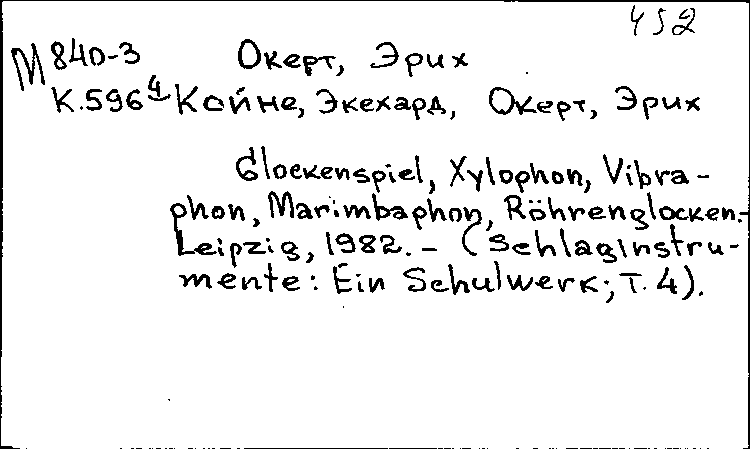 452
М 840-3 Окерт, Эрих
К.596⁴ Койне, Экехард, Окерт, Эрих
Glockenspiel, Xylophon, Vibra-
phon, Marimbaphon, Röhrenglocken.-
Leipzig, 1982. - (Schlaginstru-
mente: Ein Schulwerk; T. 4).